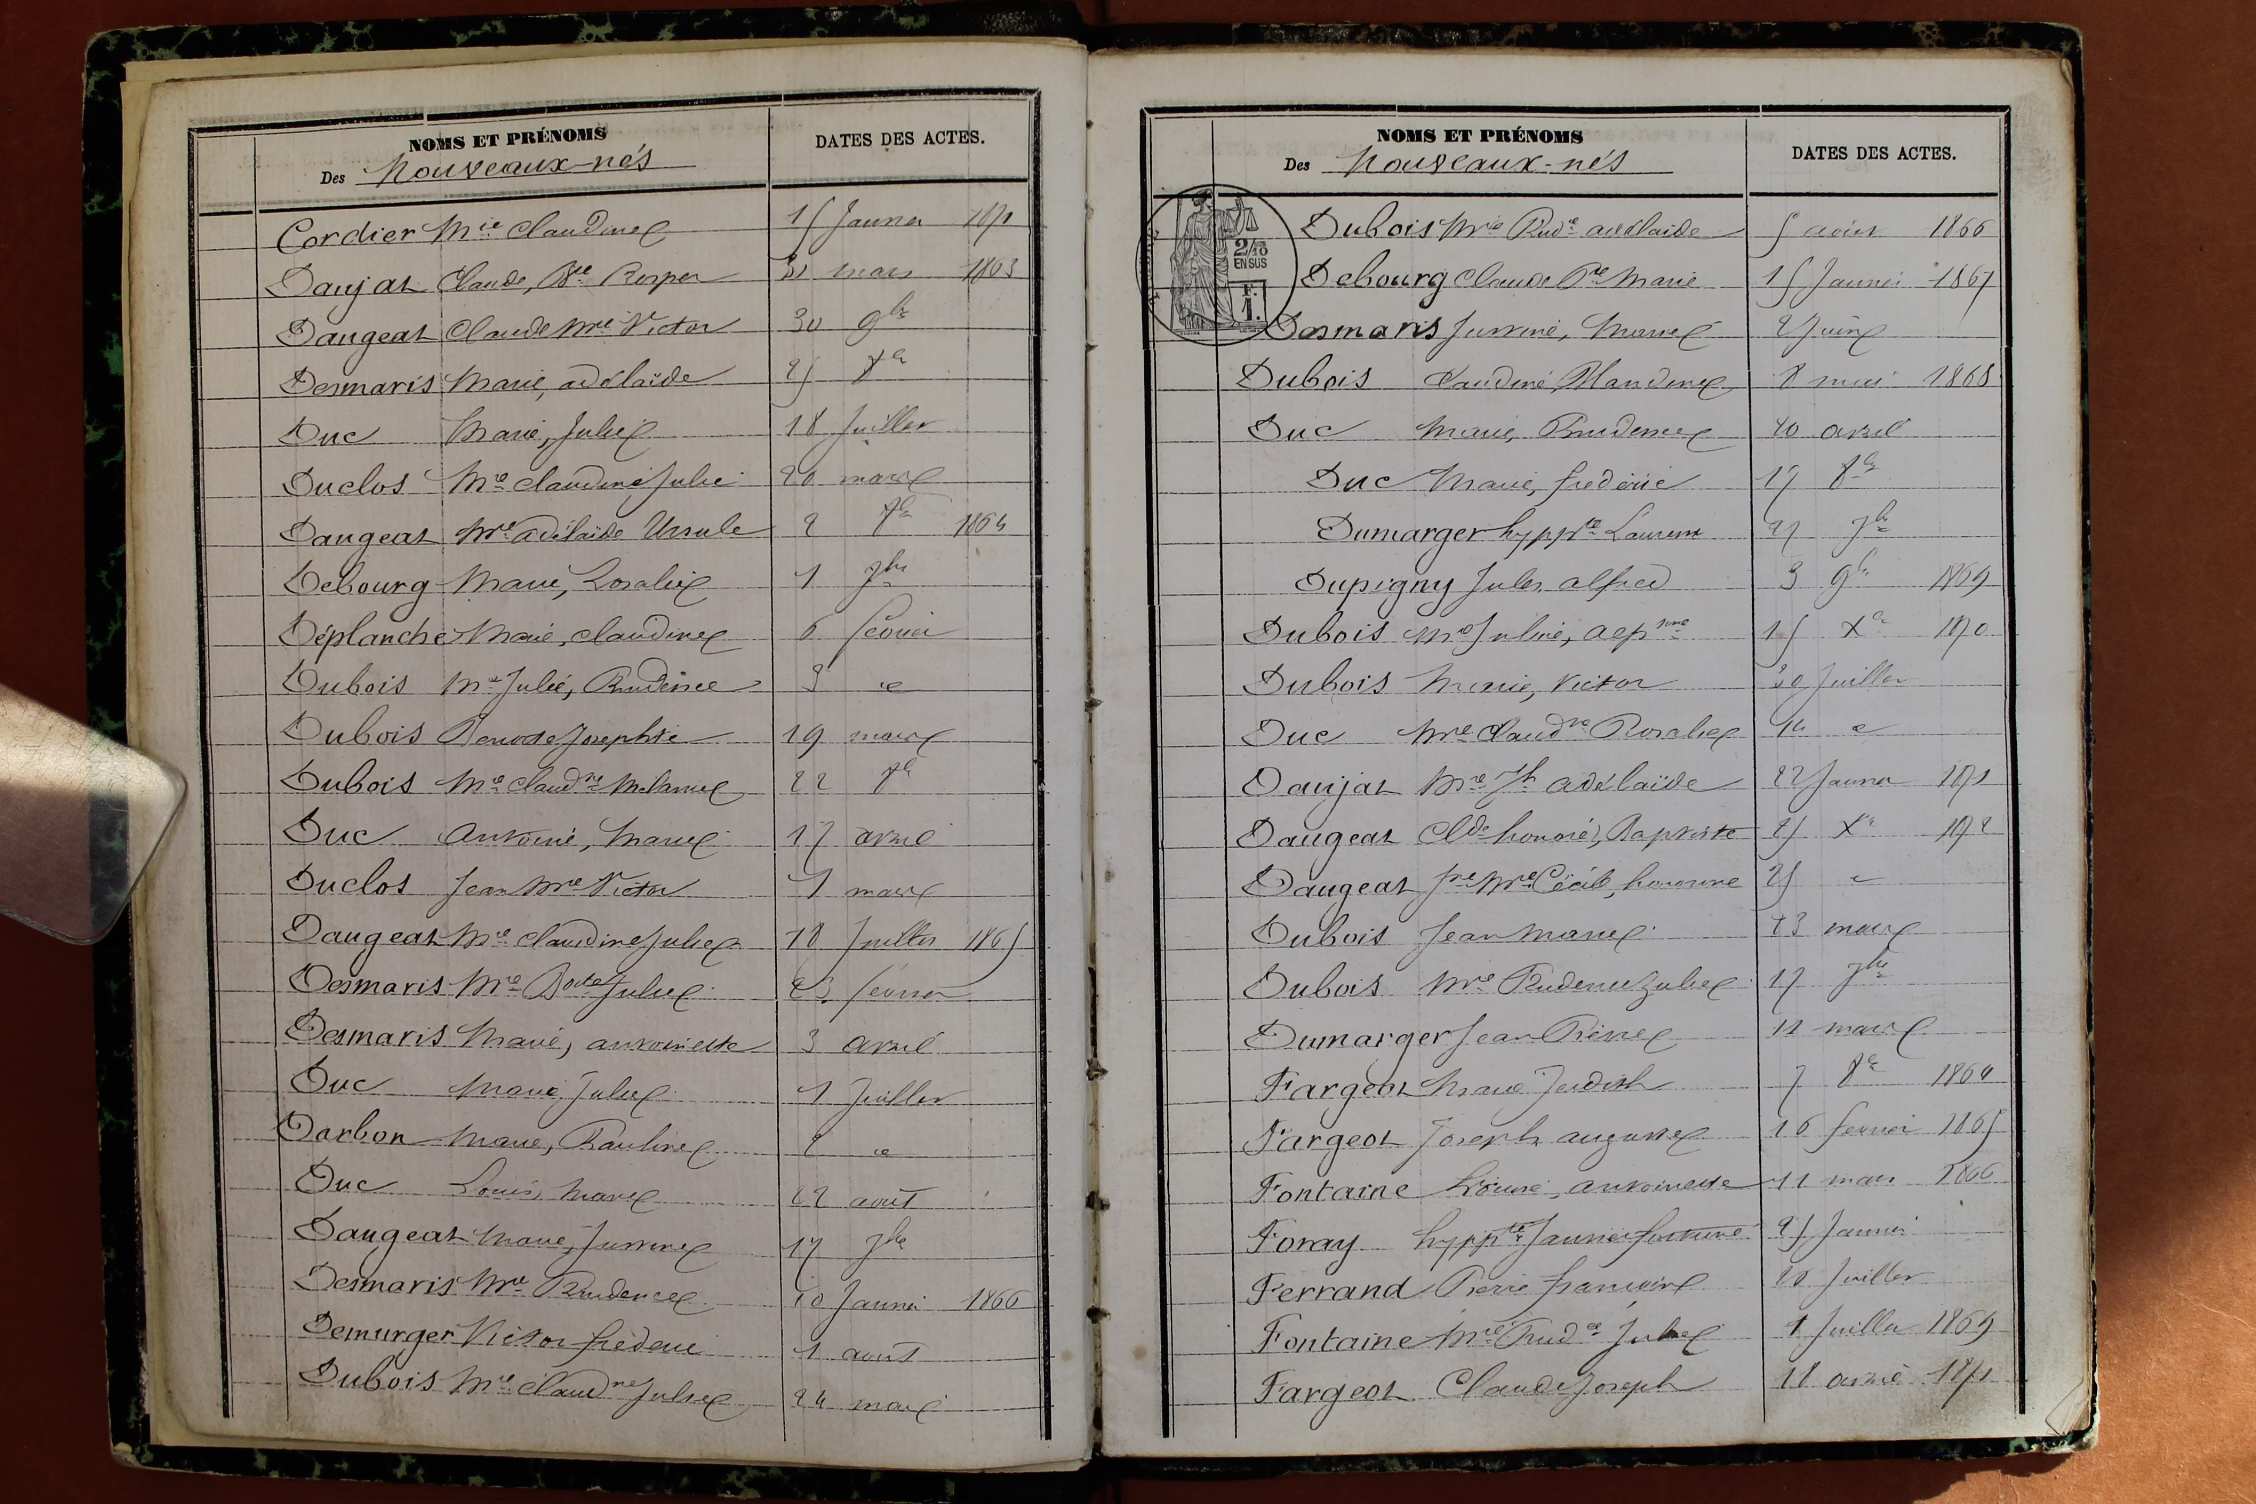 NOMS ET PRÉNOMS
Des Nouveaux-nés
DATES DES ACTES.
Cordier Mie Claudine 15 Janvier 1871
Daujat Claude, Bte Prosper 31 mars 1863
Daugeat Claude Mie Victor 30 9bre
Desmaris Marie, adélaïde 25 8bre
Duc Marie, Julie 18 Juillet
Duclos Mie Claudine Julie 20 mars
Daugeat Mie adélaïde Ursule 2 8bre 1864
Debourg Marie, Rosalie 1 7bre
Déplanche Marie, Claudine 6 février
Dubois Mie Julie, Prudence 3 "
Dubois Benoite Josephte 19 mars
Dubois Mie Claudne Mélanie 22 8bre
Duc Antoine, Marie 17 avril
Duclos Jean Mie Victor 1 mars
Daugeat Mie Claudine Julie 18 Juillet 1865
Desmaris Mie Boite Julie 23 février
Desmaris Marie, antoinette 3 avril
Duc Marie Julie 1 Juillet
Darbon Marie, Pauline 2 "
Duc Louis, Marie 22 août
Daugeat Marie, Justine 17 7bre
Desmaris Mie Prudence 10 Janvier 1866
Demurger Victor fréderic 1 août
Dubois Mie Claudne Julie 24 mai
NOMS ET PRÉNOMS
Des Nouveaux-nés
DATES DES ACTES.
2/10
EN SUS
F.
1.
Dubois Mie Prudce adélaïde 5 1866
Debourg Claude Pre Marie 15 Janvier 1867
Desmaris Justine, Marie 2 Juin
Dubois Claudine, Blandine 8 mai 1868
Duc Marie, Prudence 20 avril
Duc Marie, frédéric 17 8bre
Dumarger hyppte Laurent 27 7bre
Dupigny Jules alfred 3 9bre 1869
Dubois Mie Julie, 15 Xbre 1870
Dubois Marie, Victor 30 Juillet
Duc Mie Claudne Rosalie 14 "
Daujat Mie Jh adélaïde 22 Janvier 1871
Daugeat Clde honoré, Baptiste 25 Xbre 1872
Daugeat fse Mie Cécile, honorine 25 "
Dubois Jean Marie 23 mars
Dubois Mie Prudence Julie 17 7bre
Dumarger Jean Pierre 11 mars
Fargeot Marie Judith 7 8bre 1864
Fargeot Joseph auguste 16 février 1865
Fontaine Louise, antoinette 11 mars 1866
Foray hyppte Janvier fortuné 25 Janvier
Ferrand Pierre françois 20 Juillet
Fontaine Mie Prudce Julie 1 Juillet 1869
Fargeot Claude Joseph 18 avril 1871